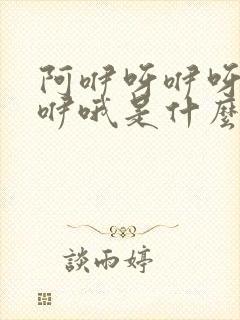 阿咿呀咿呀
咿哦是什麼
談雨婷